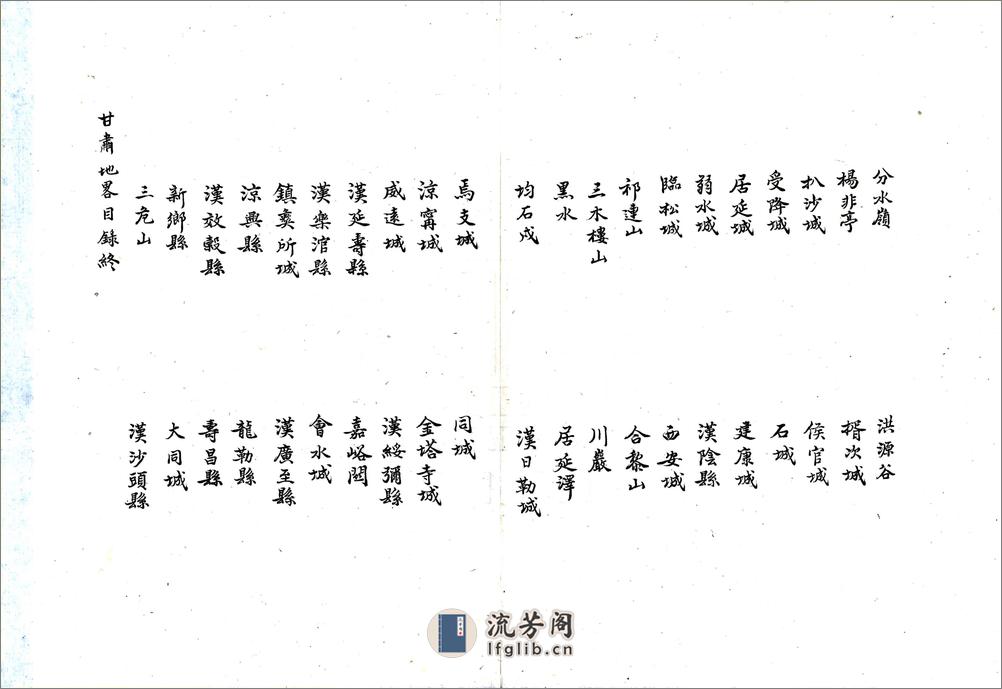 分水嶺 洪源谷
楊非亭 揟次城
扒沙城 侯官城
受降城 石城
居延城 建康城
弱水城 漢陰縣
臨松城 西安城
祁連山 合黎山
三木樓山 川巖
黑水 居延澤
均石戍 漢日勒城
焉支城 同城
涼甯城 金塔寺城
威遠城 漢綏彌縣
漢延壽縣 嘉峪関
漢樂涫縣 會水城
鎮夷所城 漢廣至縣
涼興縣 龍勒縣
漢效穀縣 壽昌縣
新鄉縣 大同城
三危山 漢沙頭縣
甘肅地畧目録終
流芳阁
lfglib.cn